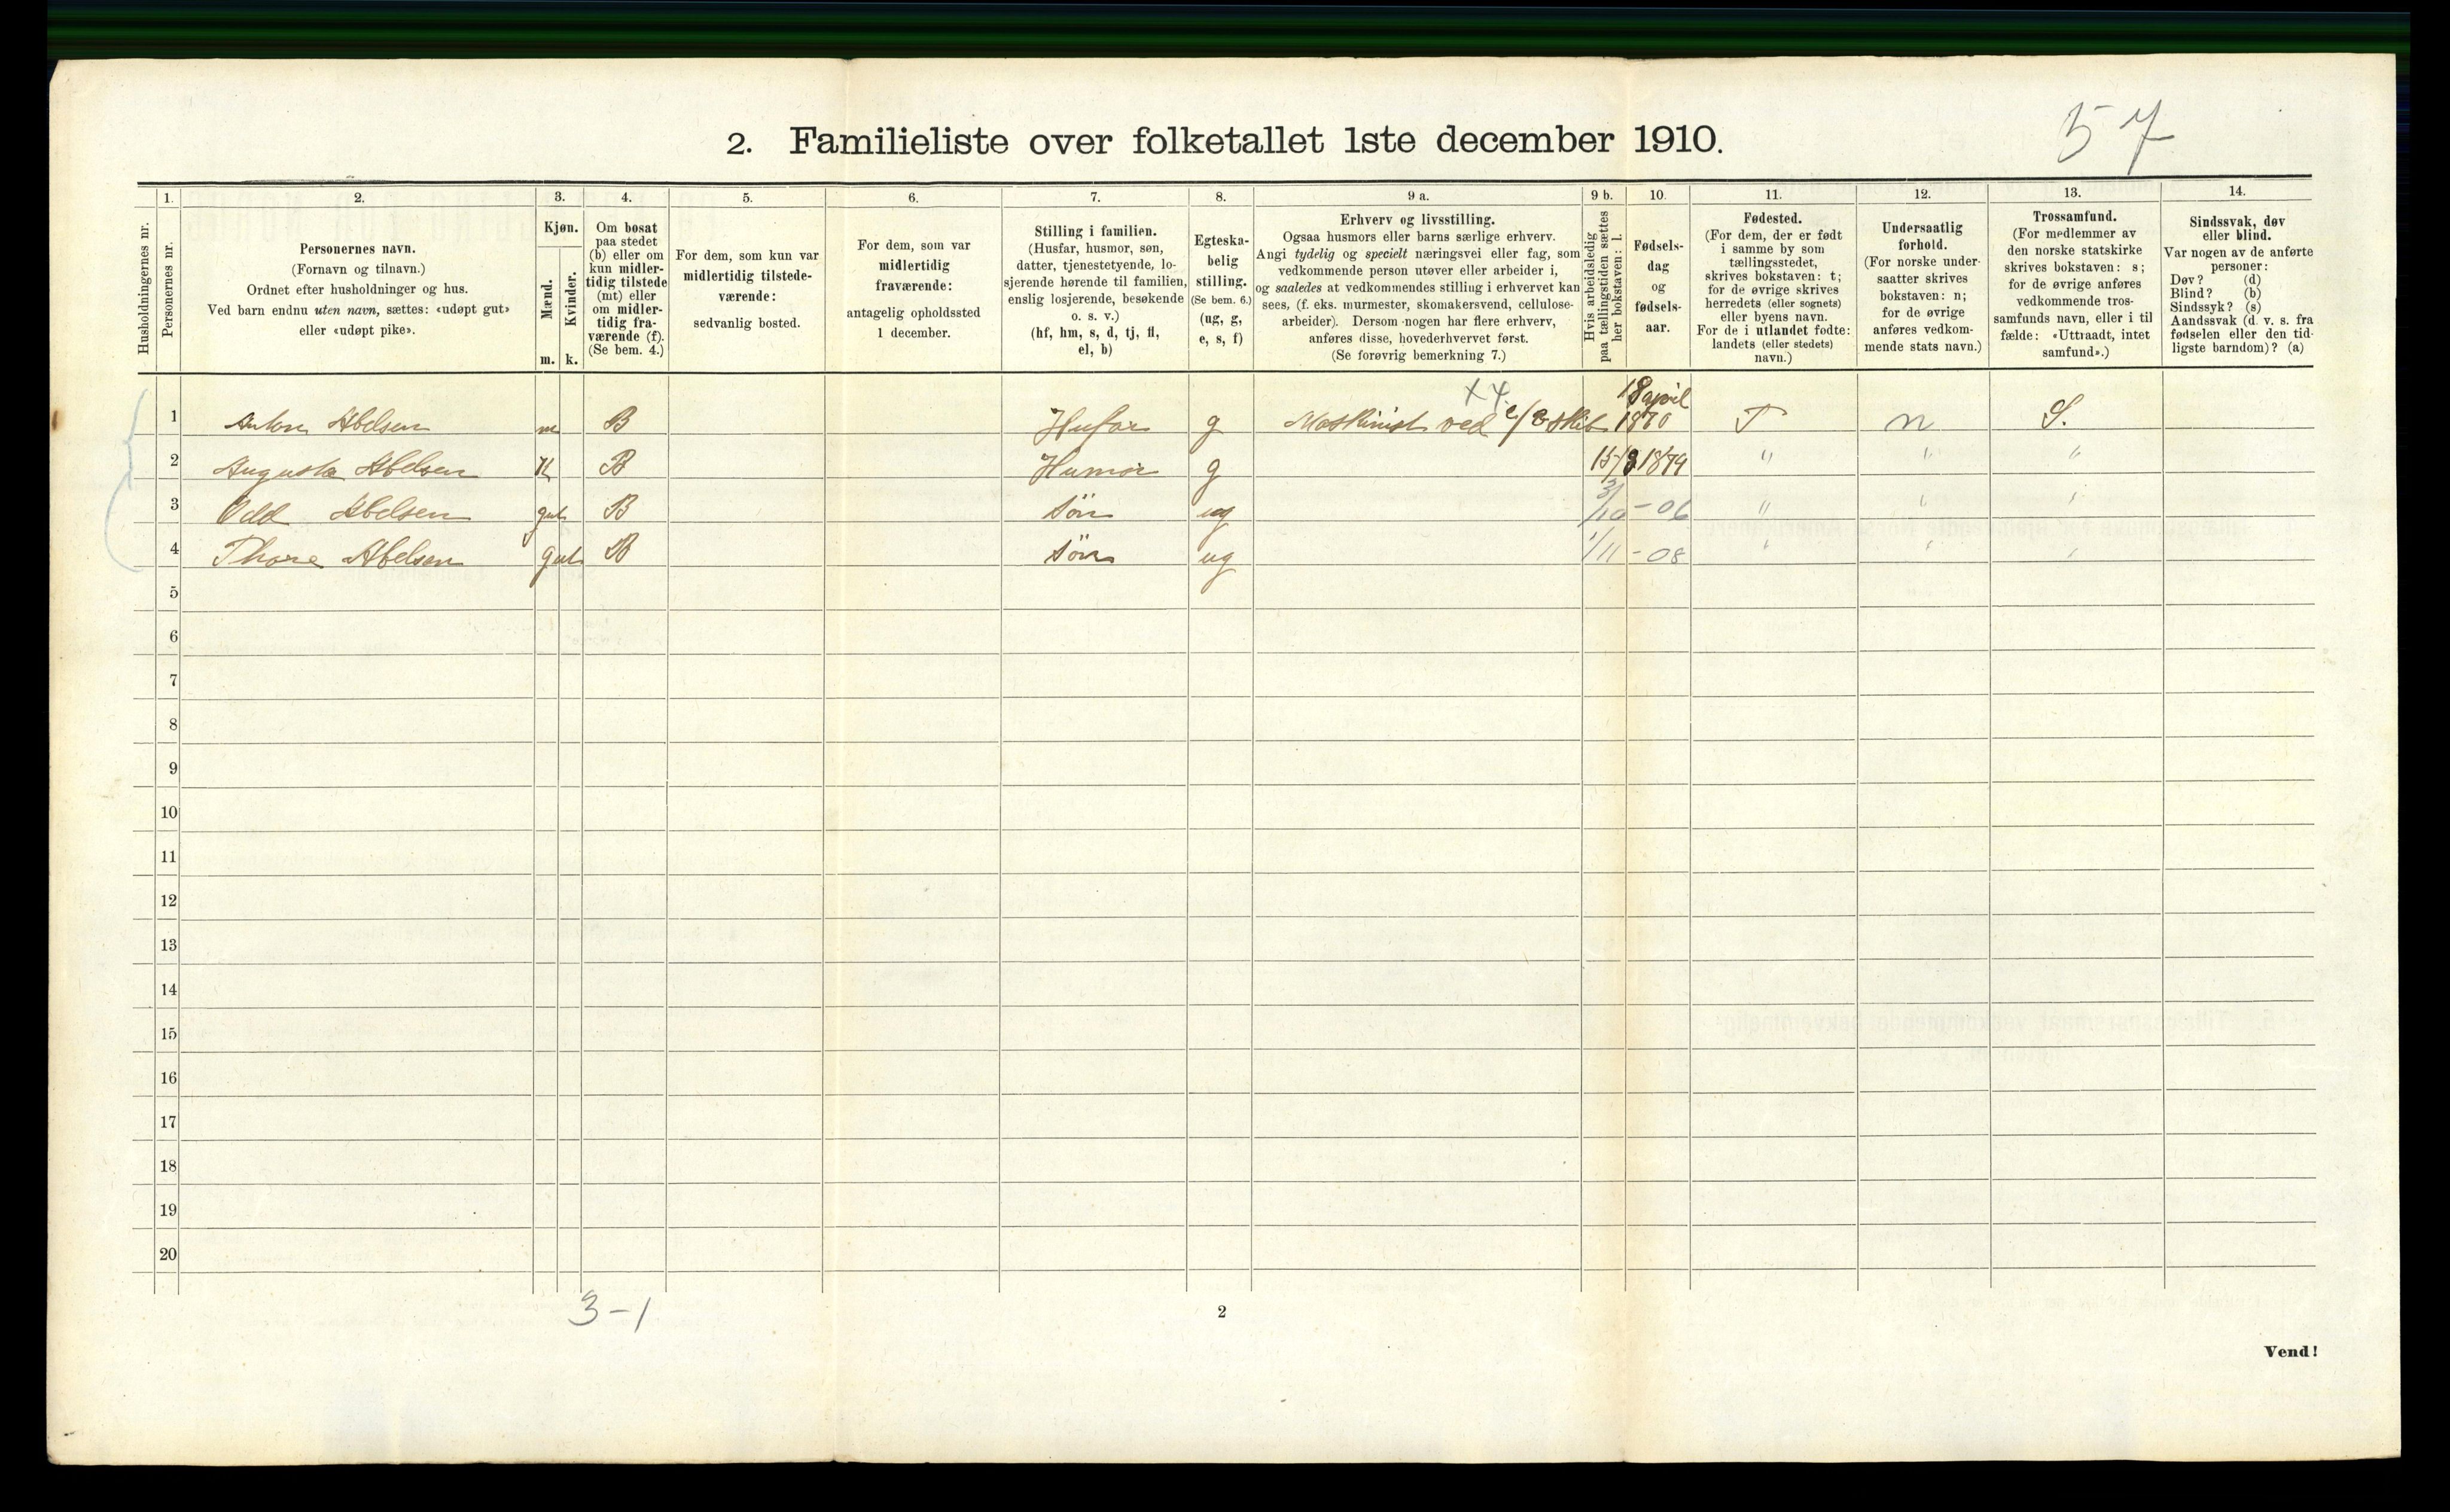 57
2. Familieliste over folketallet 1ste december 1910.
Husholdningernes nr.
1.
Personernes nr.
2.
Personernes navn.
(Fornavn og tilnavn.)
Ordnet efter husholdninger og hus.
Ved barn endnu uten navn, sættes: «udøpt gut»
eller «udøpt pike».
3.
Kjøn.
Mænd.
m.
Kvinder.
k.
4.
Om bosat
paa stedet
(b) eller om
kun midler-
tidig tilstede
(mt) eller
om midler-
tidig fra-
værende (f).
(Se bem. 4.)
5.
For dem, som kun var
midlertidig tilstede-
værende:
sedvanlig bosted.
6.
For dem, som var
midlertidig
fraværende:
antagelig opholdssted
1 december.
7.
Stilling i familien.
(Husfar, husmor, søn,
datter, tjenestetyende, lo-
sjerende hørende til familien,
enslig losjerende, besøkende
o. s. v.)
(hf, hm, s, d, tj, fl,
el, b)
8.
Egteska-
belig
stilling.
(Se bem. 6.)
(ug, g,
e, s, f)
9 a.
Erhverv og livsstilling.
Ogsaa husmors eller barns særlige erhverv.
Angi tydelig og specielt næringsvei eller fag, som
vedkommende person utøver eller arbeider i,
og saaledes at vedkommendes stilling i erhvervet kan
sees, (f. eks. murmester, skomakersvend, cellulose-
arbeider). Dersom nogen har flere erhverv,
anføres disse, hovederhvervet først.
(Se forøvrig bemerkning 7.)
9 b.
Hvis arbeidsledig
paa tællingstiden sættes
her bokstaven: l.
10.
Fødsels-
dag
og
fødsels-
aar.
11.
Fødested.
(For dem, der er født
i samme by som
tællingsstedet,
skrives bokstaven: t;
for de øvrige skrives
herredets (eller sognets)
eller byens navn.
For de i utlandet fødte:
landets (eller stedets)
navn.)
12.
Undersaatlig
forhold.
(For norske under-
saatter skrives
bokstaven: n;
for de øvrige
anføres vedkom-
mende stats navn.)
13.
Trossamfund.
(For medlemmer av
den norske statskirke
skrives bokstaven: s;
for de øvrige anføres
vedkommende tros-
samfunds navn, eller i til
fælde: «Uttraadt, intet
samfund».)
14.
Sindssvak, døv
eller blind.
Var nogen av de anførte
personer:
Døv? (d)
Blind? (b)
Sindssyk? (s)
Aandssvak (d. v. s. fra
fødselen eller den tid-
ligste barndom)? (a)
1 Anton Abelsen m B Hufar g Maskinist ved skib 18 april 1870 T n S.
X 4
2 Augusta Abelsen K B Humor g 15/8 1879 " " "
3 Odd Abelsen gut B Sön ug 3/10 - 06 " " "
4 Thore Abelsen gut B Sön ug 1/11 - 08 " " "
5
6
7
8
9
10
11
12
13
14
15
16
17
18
19
20
3-1
2
Vend!